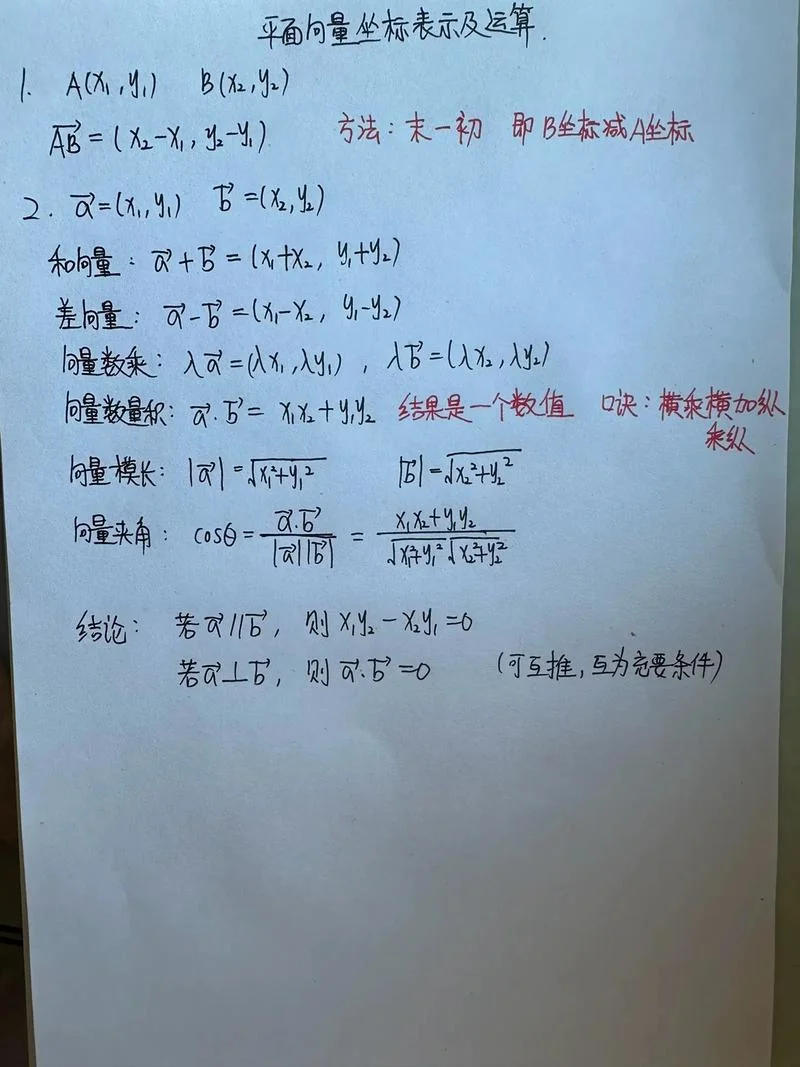 平面向量坐标表示及运算.
1. A(x₁,y₁) B(x₂,y₂)
AB→=(x₂-x₁, y₂-y₁) 方法:末-初 即B坐标减A坐标
2. a→=(x₁,y₁) b→=(x₂,y₂)
和向量: a→+b→=(x₁+x₂, y₁+y₂)
差向量: a→-b→=(x₁-x₂, y₁-y₂)
向量数乘: λa→=(λx₁,λy₁), λb→=(λx₂,λy₂)
向量数量积: a→·b→= x₁x₂+y₁y₂ 结果是一个数值 口诀:横乘横加纵
乘纵
向量模长: |a→|=√(x₁²+y₁²) |b→|=√(x₂²+y₂²)
向量夹角: cosθ=(a→·b→)/(|a→||b→|) = (x₁x₂+y₁y₂)/(√(x₁²+y₁²)√(x₂²+y₂²))
结论: 若a→//b→, 则x₁y₂-x₂y₁=0
若a→⊥b→, 则a→·b→=0 (可互推,互为充要条件)